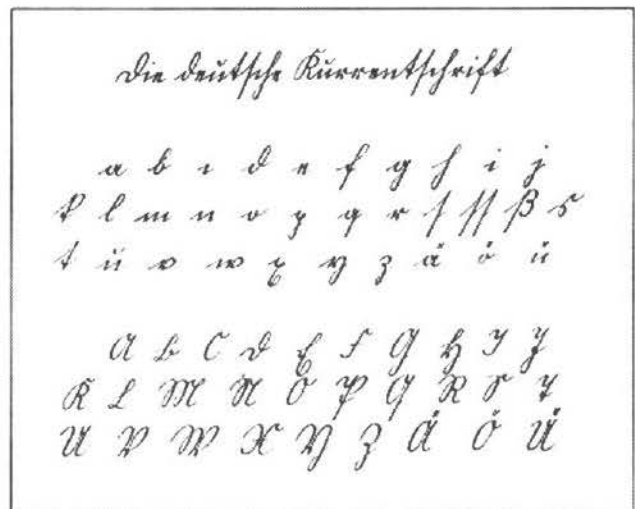 Die deutsche Kurrentschrift
a b c d e f g h i j
k l m n o p q r ſ ſſ ß s
t u v w x y z ä ö ü
A B C D E F G H I J
K L M N O P Q R S T
U V W X Y Z Ä Ö Ü